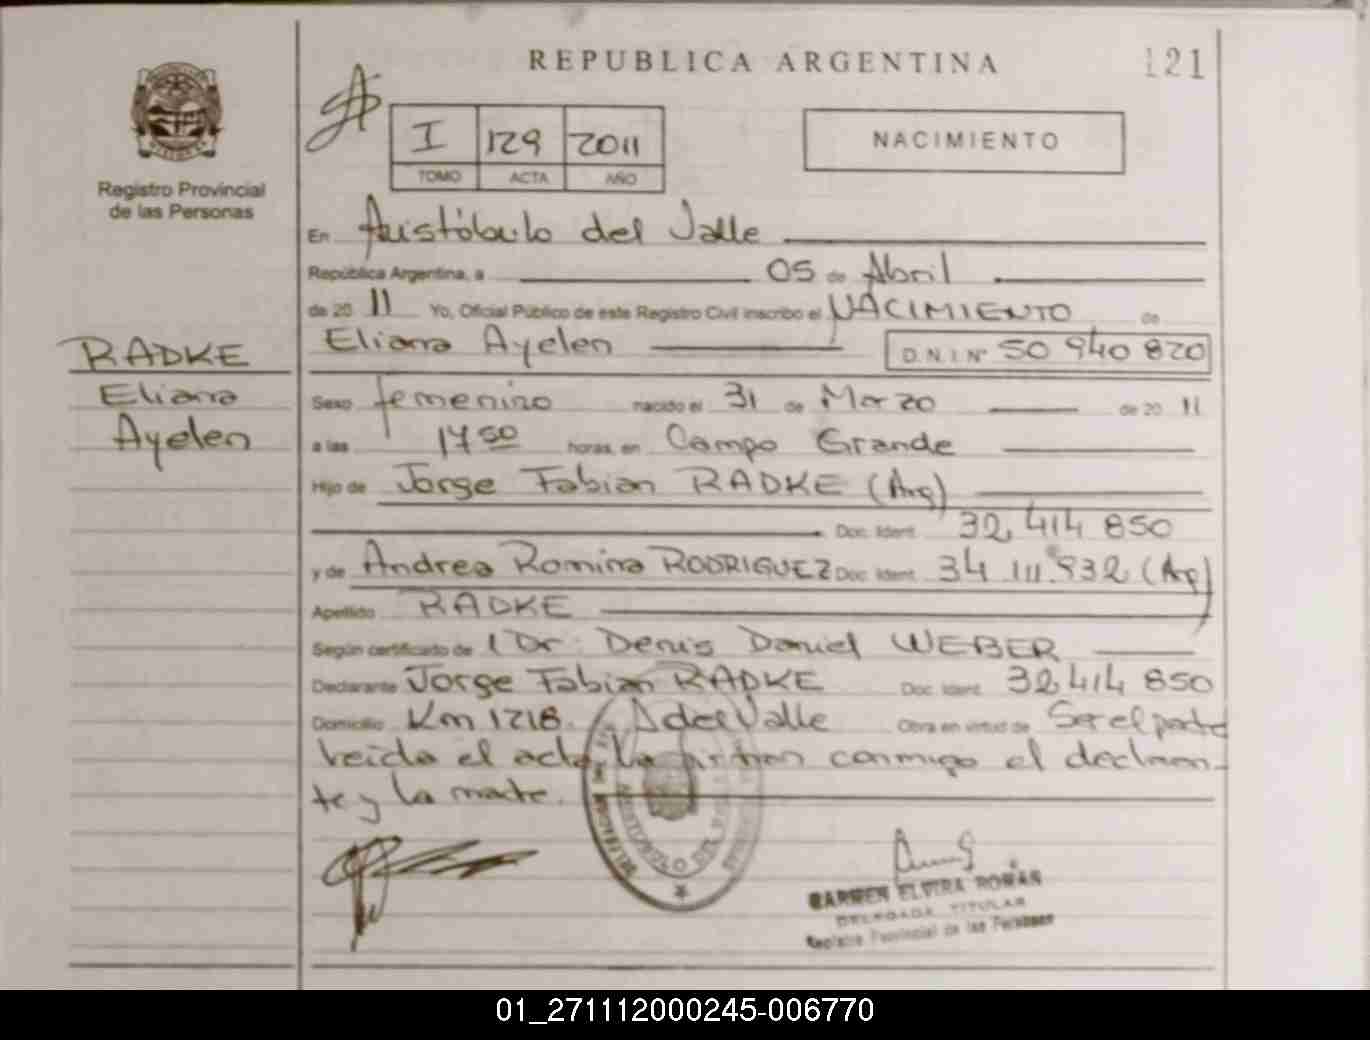 REPUBLICA ARGENTINA
121
I 129 2011
TOMO ACTA AÑO
NACIMIENTO
Registro Provincial
de las Personas
En Aristóbulo del Valle
República Argentina, a 05 de Abril
de 20 11 Yo, Oficial Público de este Registro Civil inscribo el NACIMIENTO de
RADKE
Eliana
Ayelen
Eliana Ayelen D.N.I Nº 50 940 820
Sexo femenino nacido el 31 de Marzo de 20 11
a las 17 50 horas, en Campo Grande
Hijo de Jorge Fabian RADKE (Arg)
Doc. Ident. 32.414 850
y de Andrea Romina RODRIGUEZ Doc. Ident. 34 111.932 (Arg)
Apellido RADKE
Según certificado de l Dr. Denis Daniel WEBER
Declarante Jorge Fabian RADKE Doc. Ident. 32.414 850
Domicilio Km 1218. A del Valle Obra en virtud de Ser el padre
leida el acta, la firman conmigo el declaran-
te y la madre.
CARMEN ELVIRA ROMAN
DELEGADA TITULAR
Registro Provincial de las Personas
01_271112000245-006770